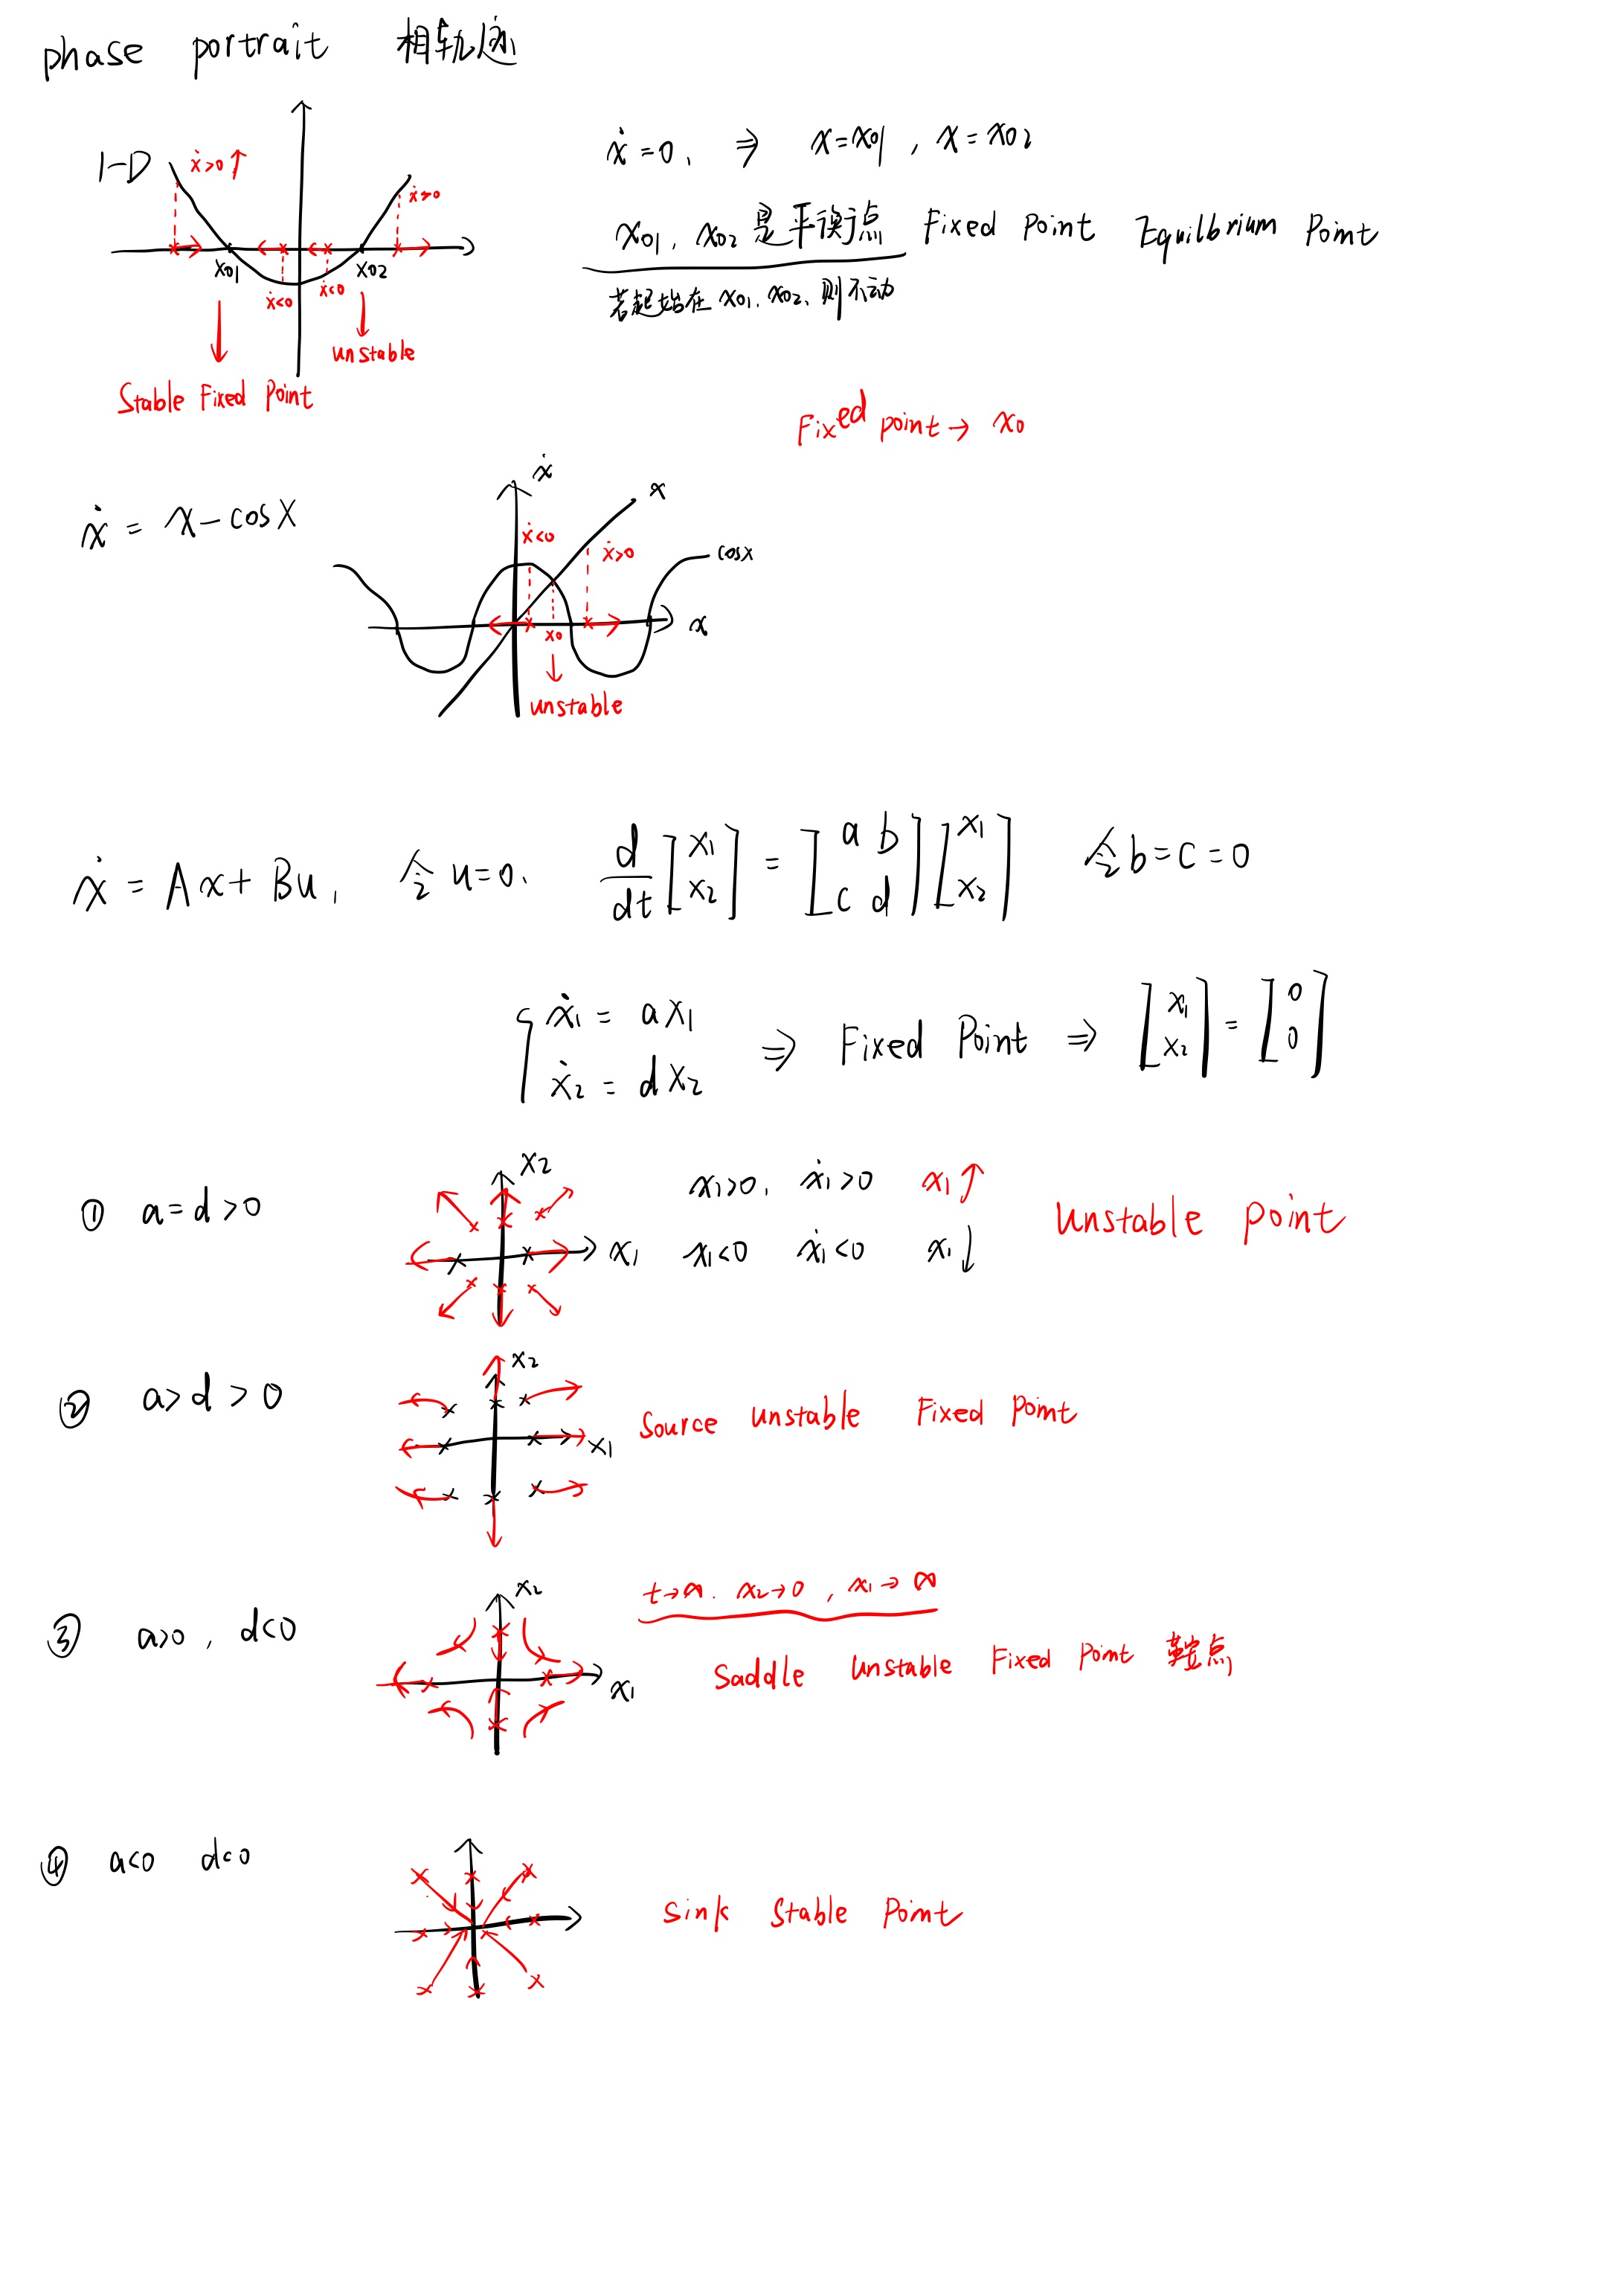 phase portrait 相轨迹
1-D ẋ>0↑ ẋ>0
x01 x02
ẋ<0 ẋ<0
unstable
Stable Fixed Point
ẋ=0, ⇒ x=x01, x=x02
x01, x02 是平衡点 Fixed Point Equilbrium Point
若起始在 x01, x02, 则不动
Fixed point → x0
ẋ = x-cosx
ẋ x
ẋ<0 ẋ>0 cosx
x0 x
unstable
ẋ = Ax + Bu, 令 u=0. d/dt [x1 x2] = [a b c d] [x1 x2] 令 b=c=0
{ ẋ1 = ax1 ẋ2 = dx2 ⇒ Fixed Point ⇒ [x1 x2] = [0 0]
① a=d>0 x2 x1 x1>0, ẋ1>0 x1↑
x1<0 ẋ1<0 x1↓
Unstable point
② a>d>0 x2 x1 Source unstable Fixed Point
③ a>0, d<0 x2 x1 t→∞. x2→0, x1→∞
Saddle Unstable Fixed Point 鞍点
④ a<0 d<0 Sink Stable Point